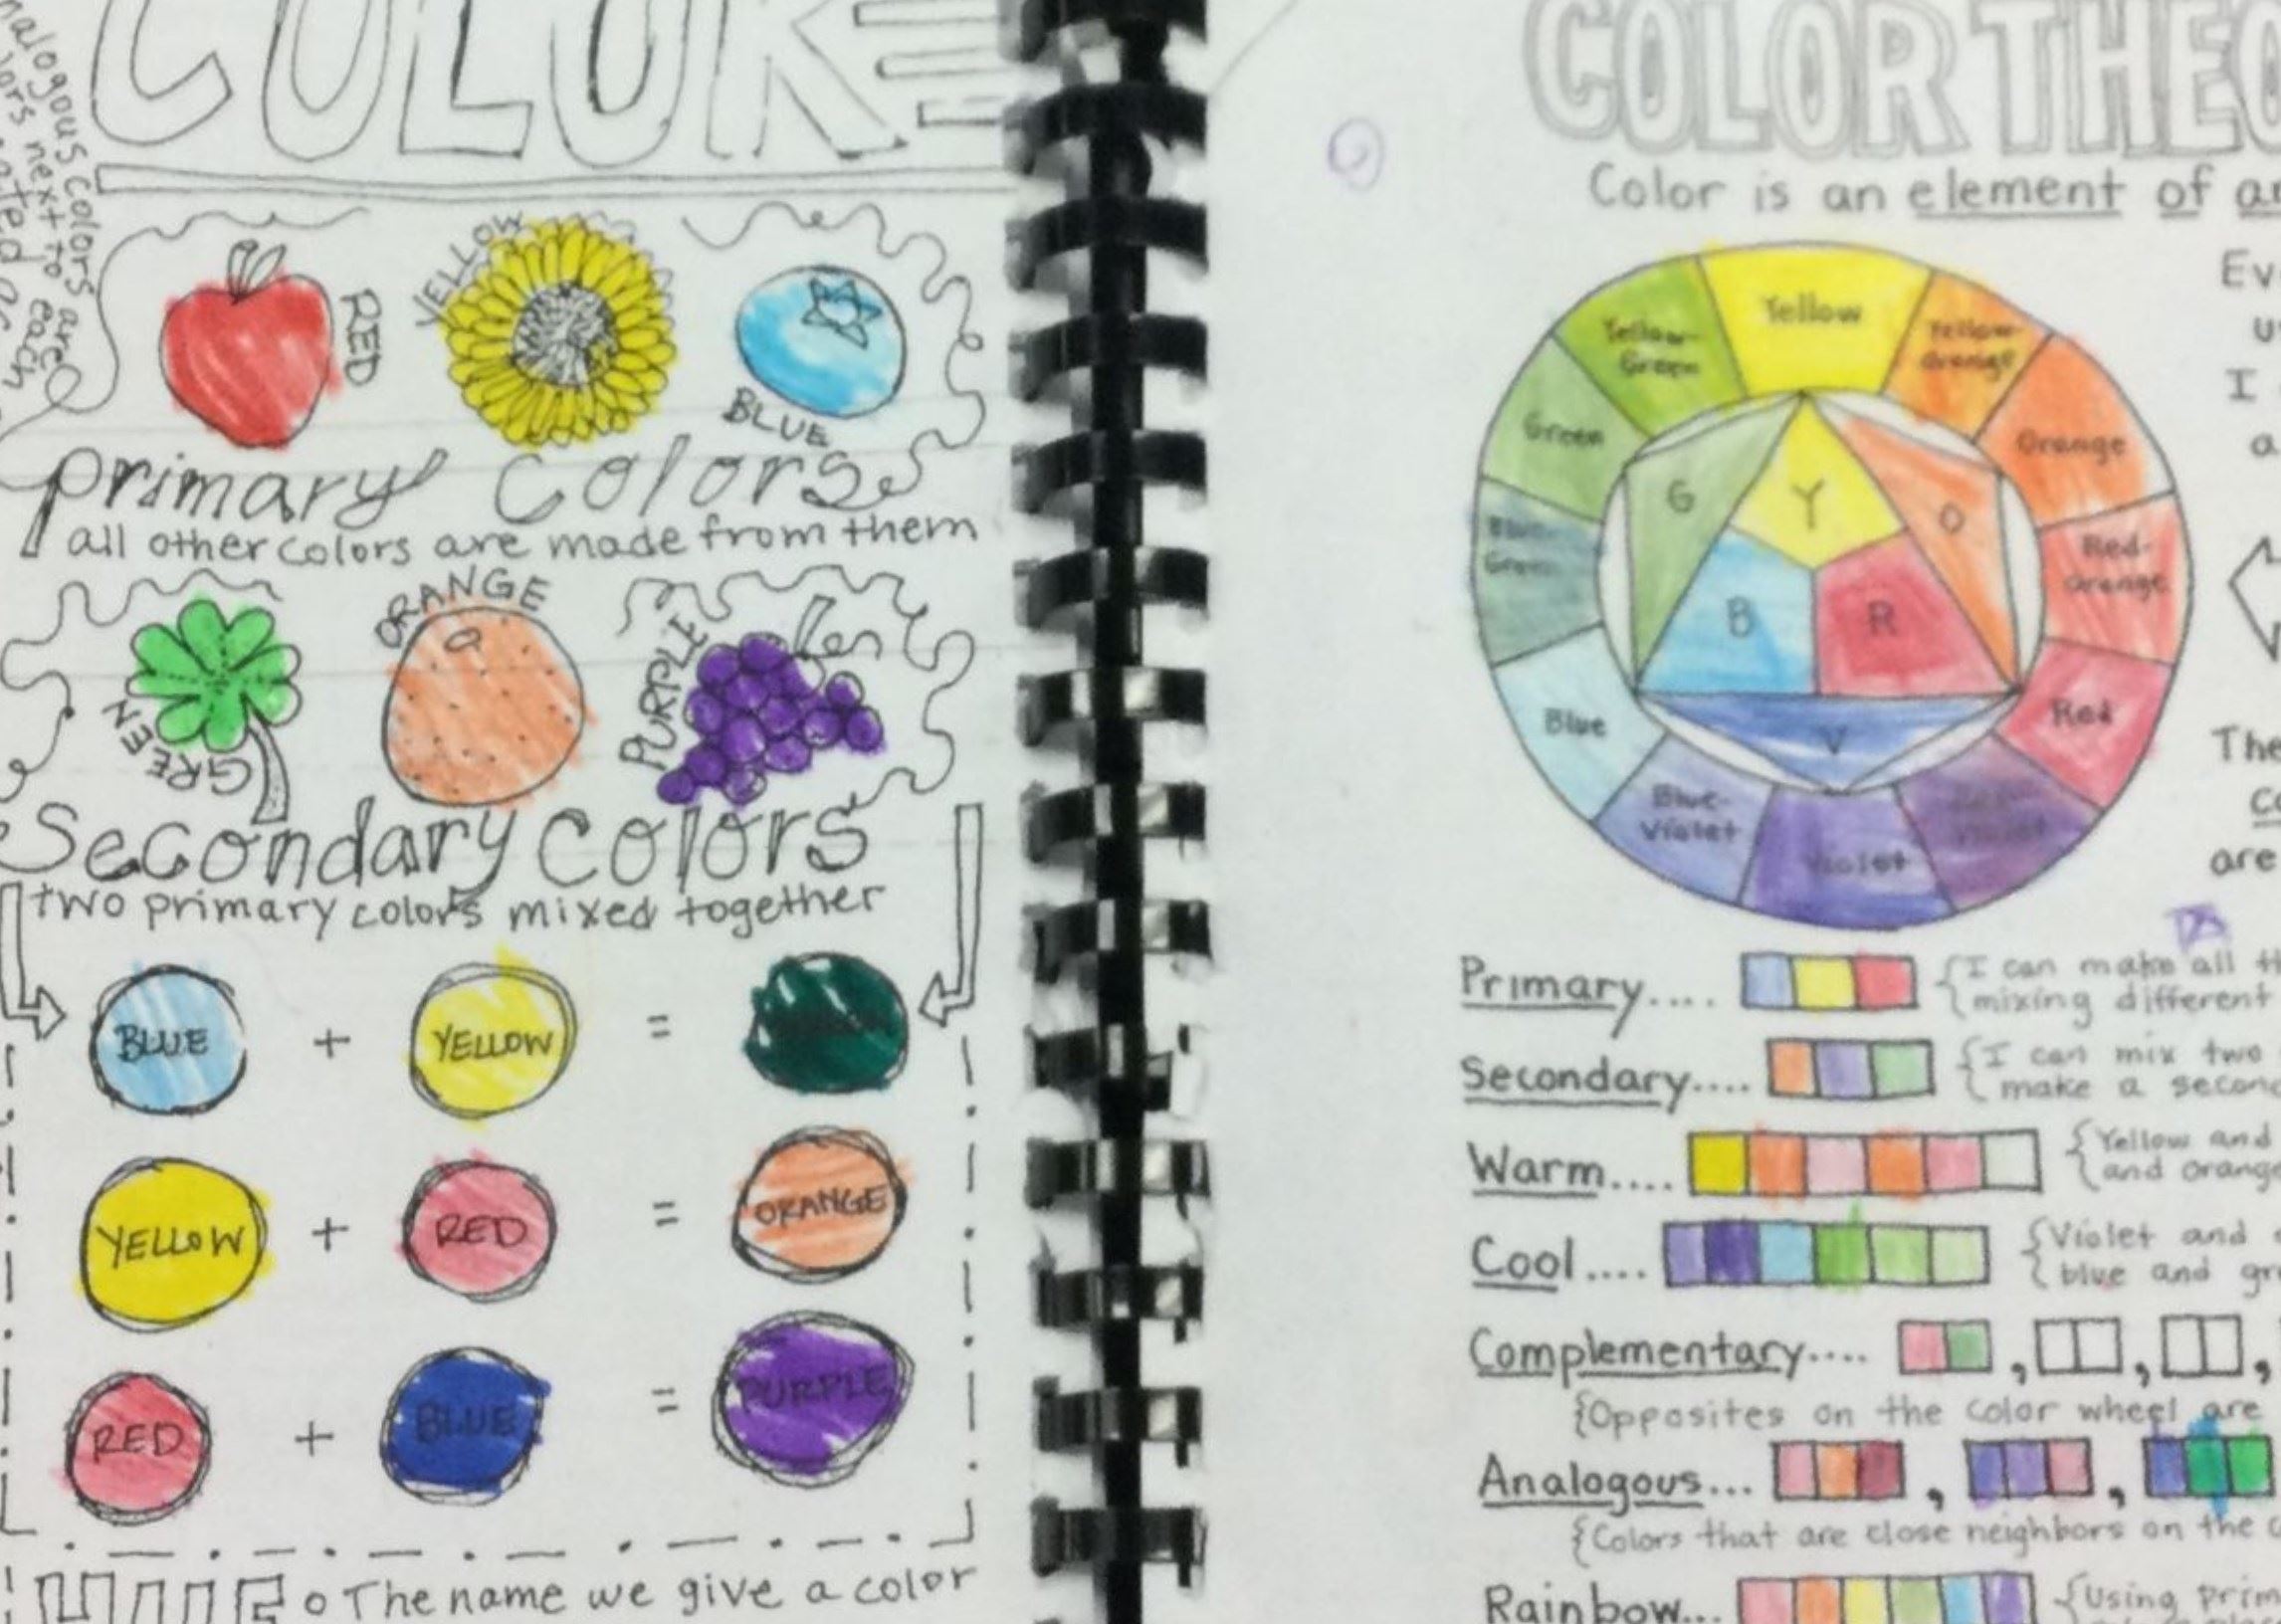 COLOR
analogous colors are
colors next to each
RED
YELLOW
BLUE
primary colors
all other colors are made from them
GREEN
ORANGE
PURPLE
Secondary colors
two primary colors mixed together
BLUE + YELLOW =
YELLOW + RED = ORANGE
RED + BLUE = PURPLE
HUE: The name we give a color
COLOR THEO
Color is an element of ar
Yellow
Yellow-Orange
Orange
Red-Orange
Red
Violet
Blue-Violet
Blue
Blue-Green
Green
Yellow-Green
G
Y
O
B
R
V
Ev
I
a
The
are
Primary....
{I can make all th
mixing different
Secondary....
{I can mix two
make a second
Warm....
{Yellow and
and orange
Cool....
{Violet and
blue and gr
Complementary.... , , ,
{Opposites on the color wheel are
Analogous... , ,
{Colors that are close neighbors on the c
Rainbow...
{Using prim